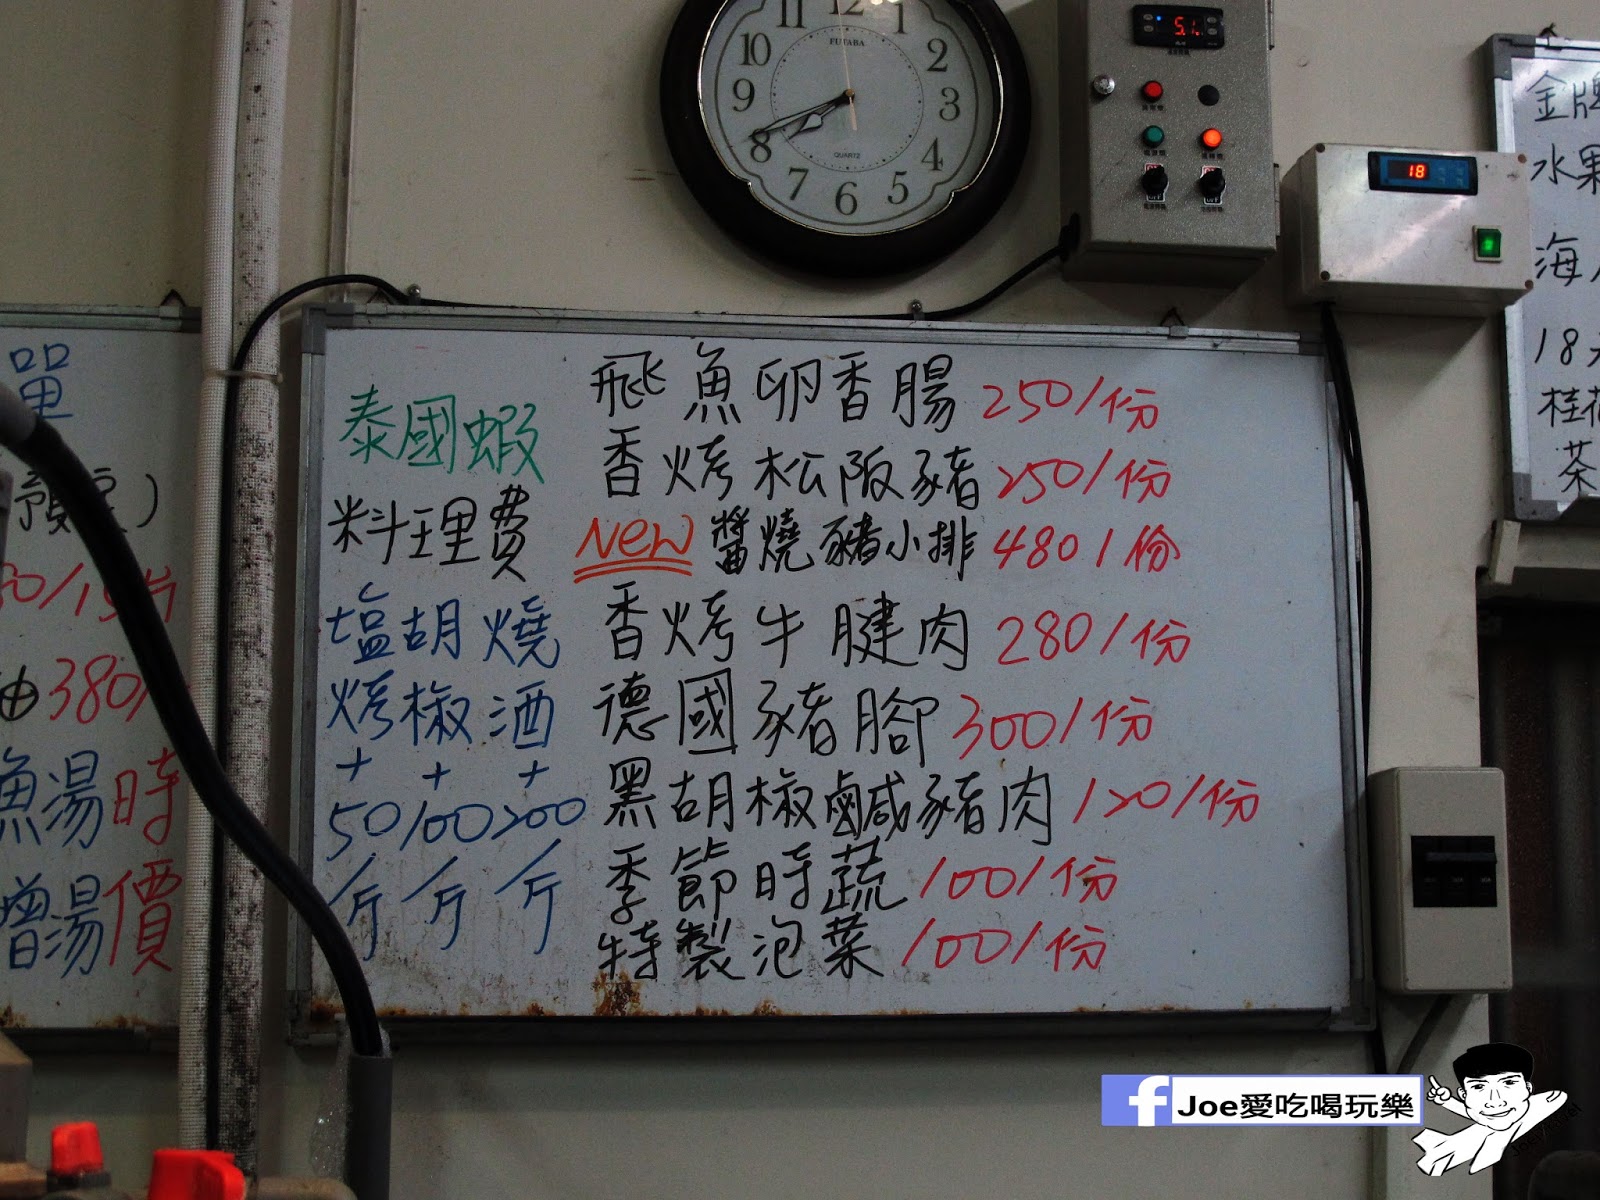 11 12 1
10 2
9 3
8 4
7 6 5
FUTABA
QUARTZ
5.1.
18
單
預定)
380/
魚湯時
增湯價
泰國蝦
料理費
塩胡燒
烤椒酒
+ + +
50 100 200
/斤 /斤 /斤
飛魚卵香腸 250/份
香烤松阪豬 250/份
NEW 醬燒豬小排 480/份
香烤牛腱肉 280/份
德國豬腳 300/份
黑胡椒鹹豬肉 120/份
季節時蔬 100/份
特製泡菜 100/份
金牌
水果
海
18天
桂花
茶
f Joe愛吃喝玩樂